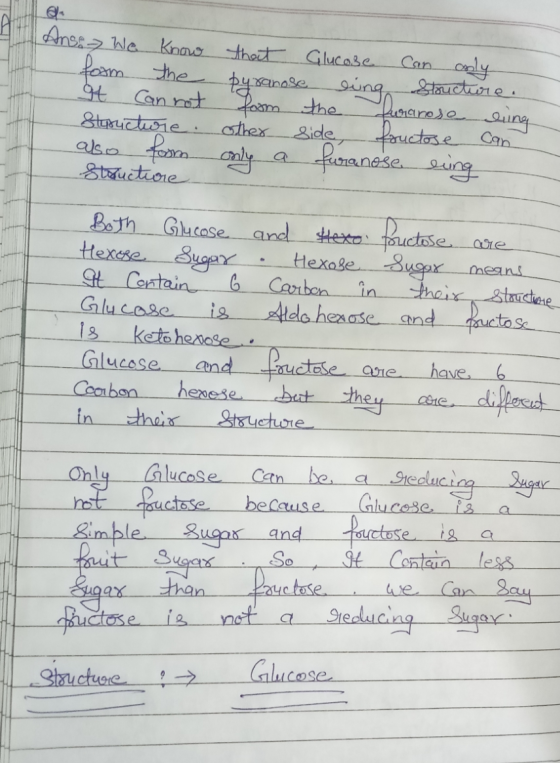 Ans:→ We Know that Glucose Can only
form the pyranose ring Structure.
It Can not form the furanose ring
Structure. other side, fructose can
also form only a furanose ring
Structure
Both Glucose and Hexo fructose are
Hexose Sugar. Hexose Sugar means
It Contain 6 Carbon in their Structure
Glucose is Aldohexose and fructose
is Ketohexose.
Glucose and fructose are have 6
Carbon hexose but they are different
in their Structure
Only Glucose Can be a reducing Sugar
not fructose because Glucose is a
Simple Sugar and fructose is a
fruit Sugar. So, It Contain less
Sugar than fructose. we Can Say
fructose is not a reducing Sugar.
Structure :→ Glucose